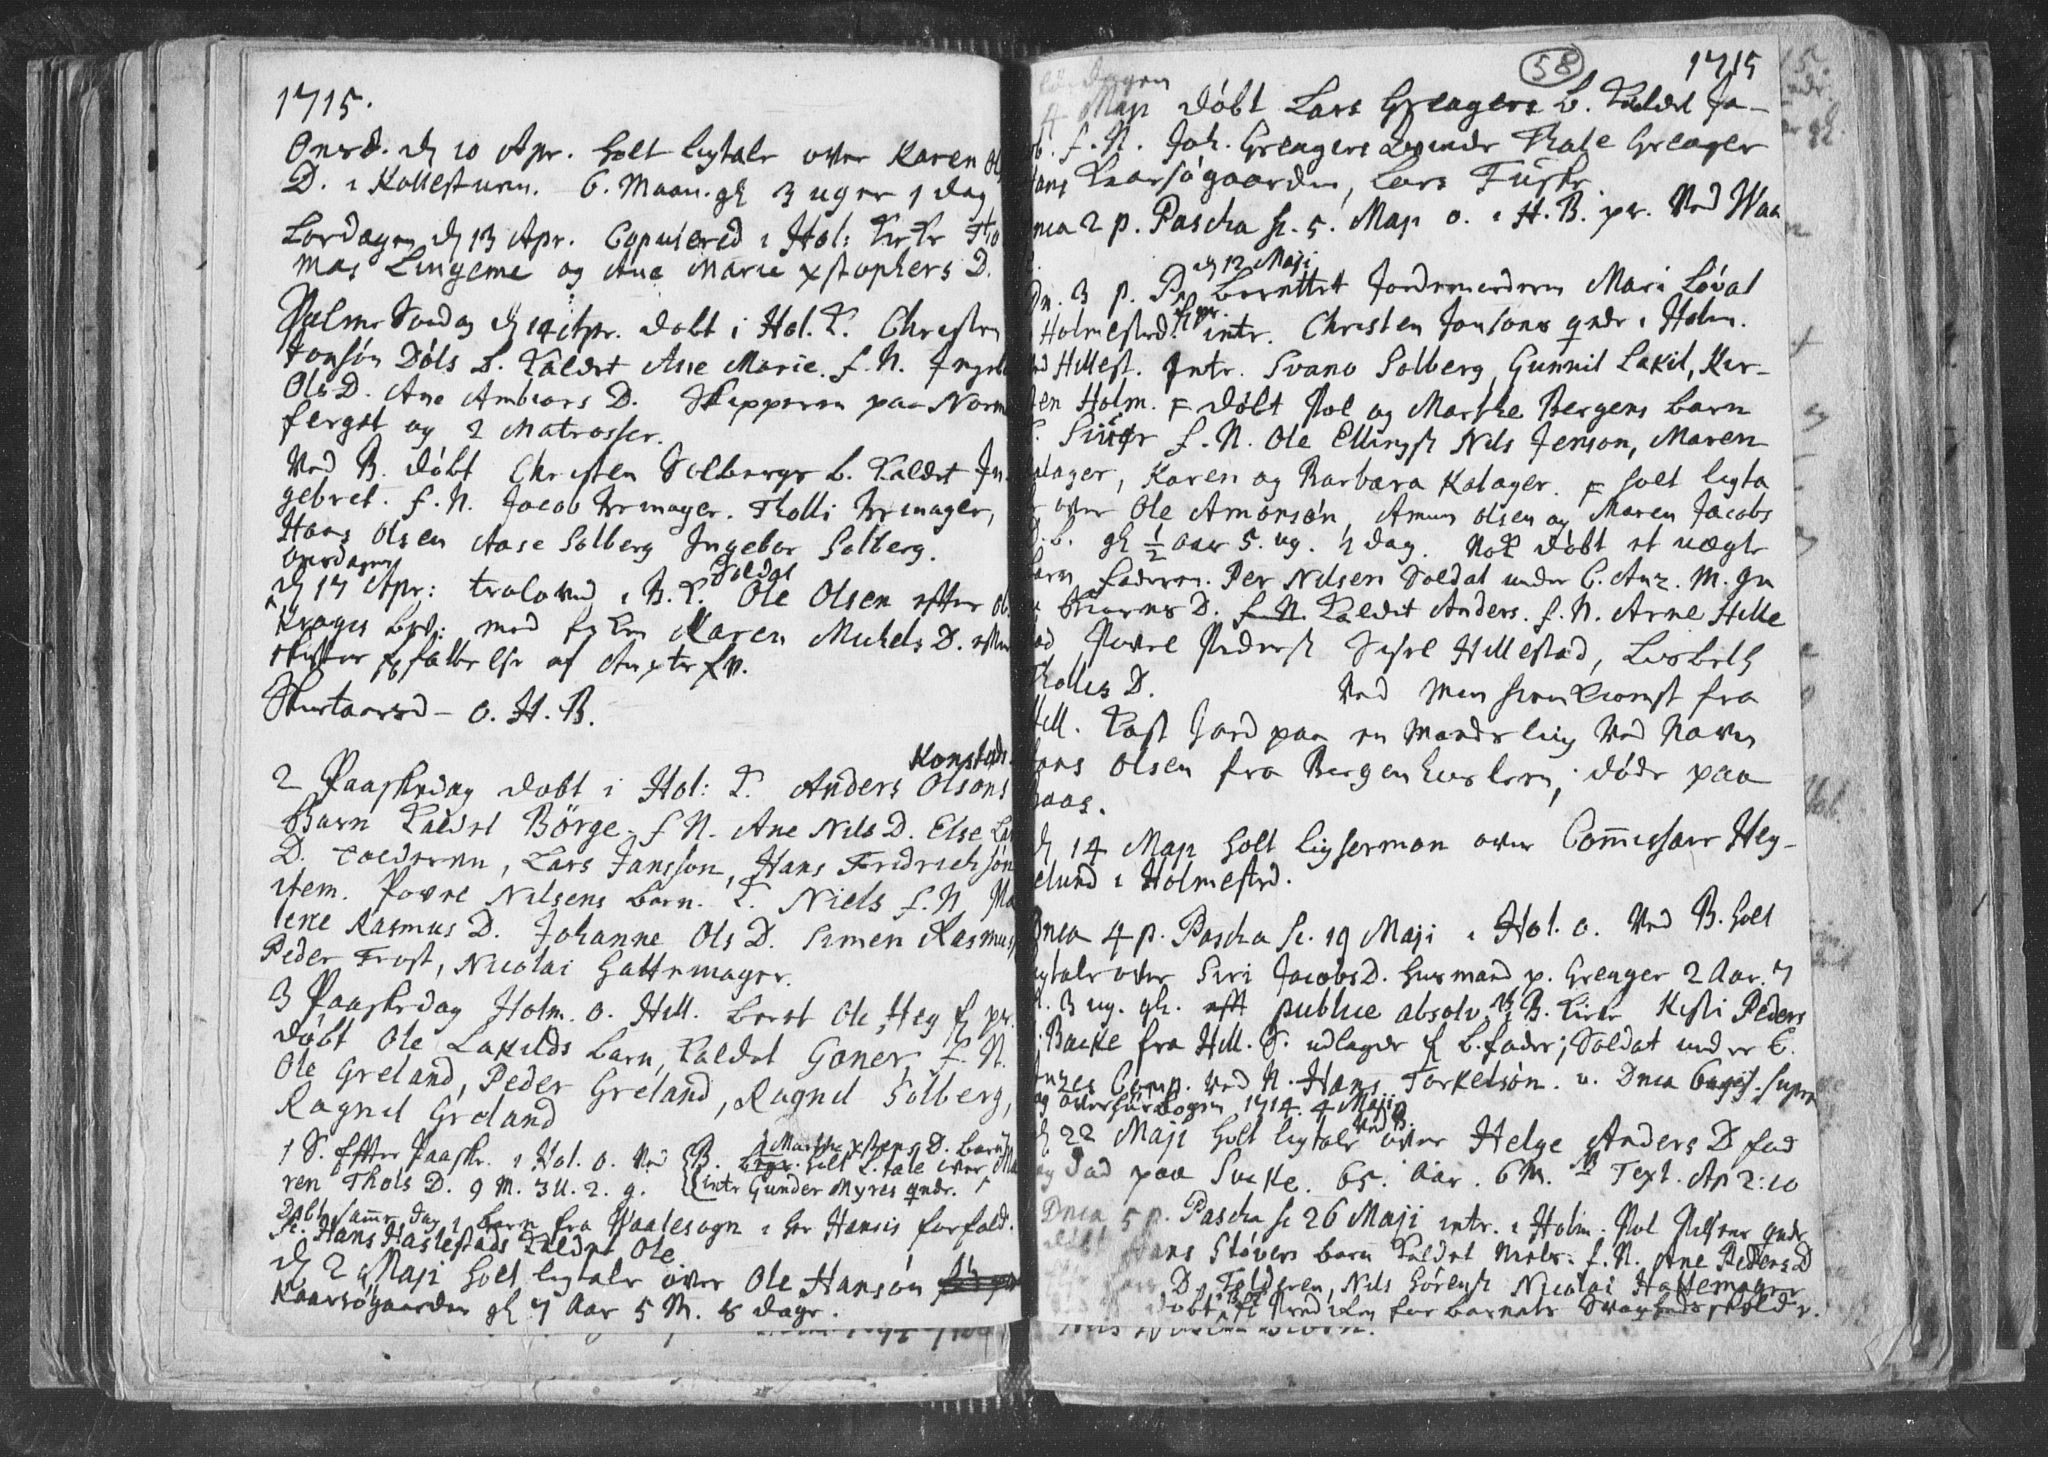 1715.
Onsd. d 10 Apr. holt ligtale over Karen Ols
D. i Kollesturn. 6. Maan. gl 3 uger 1 dag
Lordagen d 13 Apr. Copulered i Hol: Kirke Tho
mas Lingeme og Ane Marie xstophers D.
Palme Sondag d 14 Apr. dobt i Hol. K. Christen
Jonsón Dóls b. kaldet Ane Marie. f. N. Ingeb
Ols D. Ane Ambiørs D. Skipperen paa Norm
fergot og 2 Matrosser.
Ved B. dóbt Christen Solbergs b. kaldet In
gebret. f. N. Jacob Hremager. Tholli Hremager,
Hans Olsen Aase Solberg Ingebor Solberg.
Onsdagen
Soldat
d 17 Apr: troloved i B. K. Ole Olsen efter Ob.
Krages bev: med Karen Michels D. efter
af
Skiertorsd - o. H. B.
Konstabs.
2 Paaskedag dobt i Hol: K. Anders Olsons
Barn kaldet Börge. f. N. Ane Nils D. Else La
D. tolderen, Lars Jansson, Hans Fridrichsón
item. Povel Nilsens barn. K. Niels f. N. Ma
lene Rasmus D. Johanne Ols D. Simen Rasmus
Peder Frost, Nicolai Hattemager.
3 Paaskedag Holm. o. Hill. beret Ole Heg
dóbt Ole Lakilds barn, kaldet Goner, f. N.
Ole Greland, Peder Greland, Ragnel Sólberg,
Ragnel Greland
1 S. efter Paaske. i Hol. o. Ved B. Marthe xstens D. barn
holt l. tale over Ma
ren Thols D. 9 M. 3 U. 2. g. intr Gunder Myres qnde.
Dobt samme dag 1 barn fra Waalesogn i hr Hansis forfald.
Hans Haslestads kaldet Ole
d 2 Maji holt ligtale over Ole Hansón
Kaarsógaarden gl 7 Aar 5 M. 8 dage.
58
1715
Lördagen
4 Maji dóbt Lars Grengers b. kaldet Ja-
f. N. Joh. Grengers qvinde Thale Grenger
Hans Kaarsógaarden, Lars Fuske.
Dnca 2 p. Pascha sc. 5. Maji o. i H. B. pr. Ved Waa
d 12 Maji
Dn. 3 p. P. berettet Jordemoderen Mari Lóval
Holmestrd. intr. Christen Jonsons qnde i Holm.
Ved Hillest. Intr. Svano Solberg, Gunnil Lakil, Kir-
sten Holm. dóbt Pol og Marthe Bergens barn
f. N. Ole Ellingss Nils Jenson, Maren
Kalager, Karen og Barbara Kalager. holt ligta
le over Ole Amonsón, Amun Olsen og Maren Jacobs
D. b. gl ½ aar 5. ug. 2 dag. Nok dóbt et uægte
barn, faderen. Per Nilsen Soldat under C. Anz. M. Gu
Biörns D. f. N. kaldet Anders. f. N. Arne Hille
stad, Povel Peders Sisel Hillestad, Lisbeth
Tholles D. Ved min hiemkomst fra
Hill. kast Jord paa en mands liig ved navn
Hans Olsen fra Bergen; döde paa
Haas.
d 14 Maji holt ligsermon over Commissair Heg-
elund i Holmestrd.
Dnca 4 p. Pascha sc. 19 Maji i Hol. o. Ved B. holt
ligtale over Siri Jacobs D. husmand p. Grenger 2 Aar. 7
M. 3 ug. gl. publice absolv. i B. kirke Kisti Peders
D. Backe fra Hill. S. udlagde t b. fader; Soldat under C.
Anzes Comp. ved N. Hans Torkelsón. v. Dnca
1714. 4 Maji
Ved B.
d 22 Maji holt ligtale over Helge Anders D. fød
og död paa Sucke. 65. Aar. 6 M. Text. Ap 2:10
Dnca 5 p. Pascha sc 26 Maji intr. i Holm. Pol Pilsens qnde
döbt Hans Stóvers barn kaldet Mols. f. N. Ane Peders D
D. Tolderen, Nils Sórenss Nicolai Hattemager
dobt Prediken for barnets Svagheds skyld.